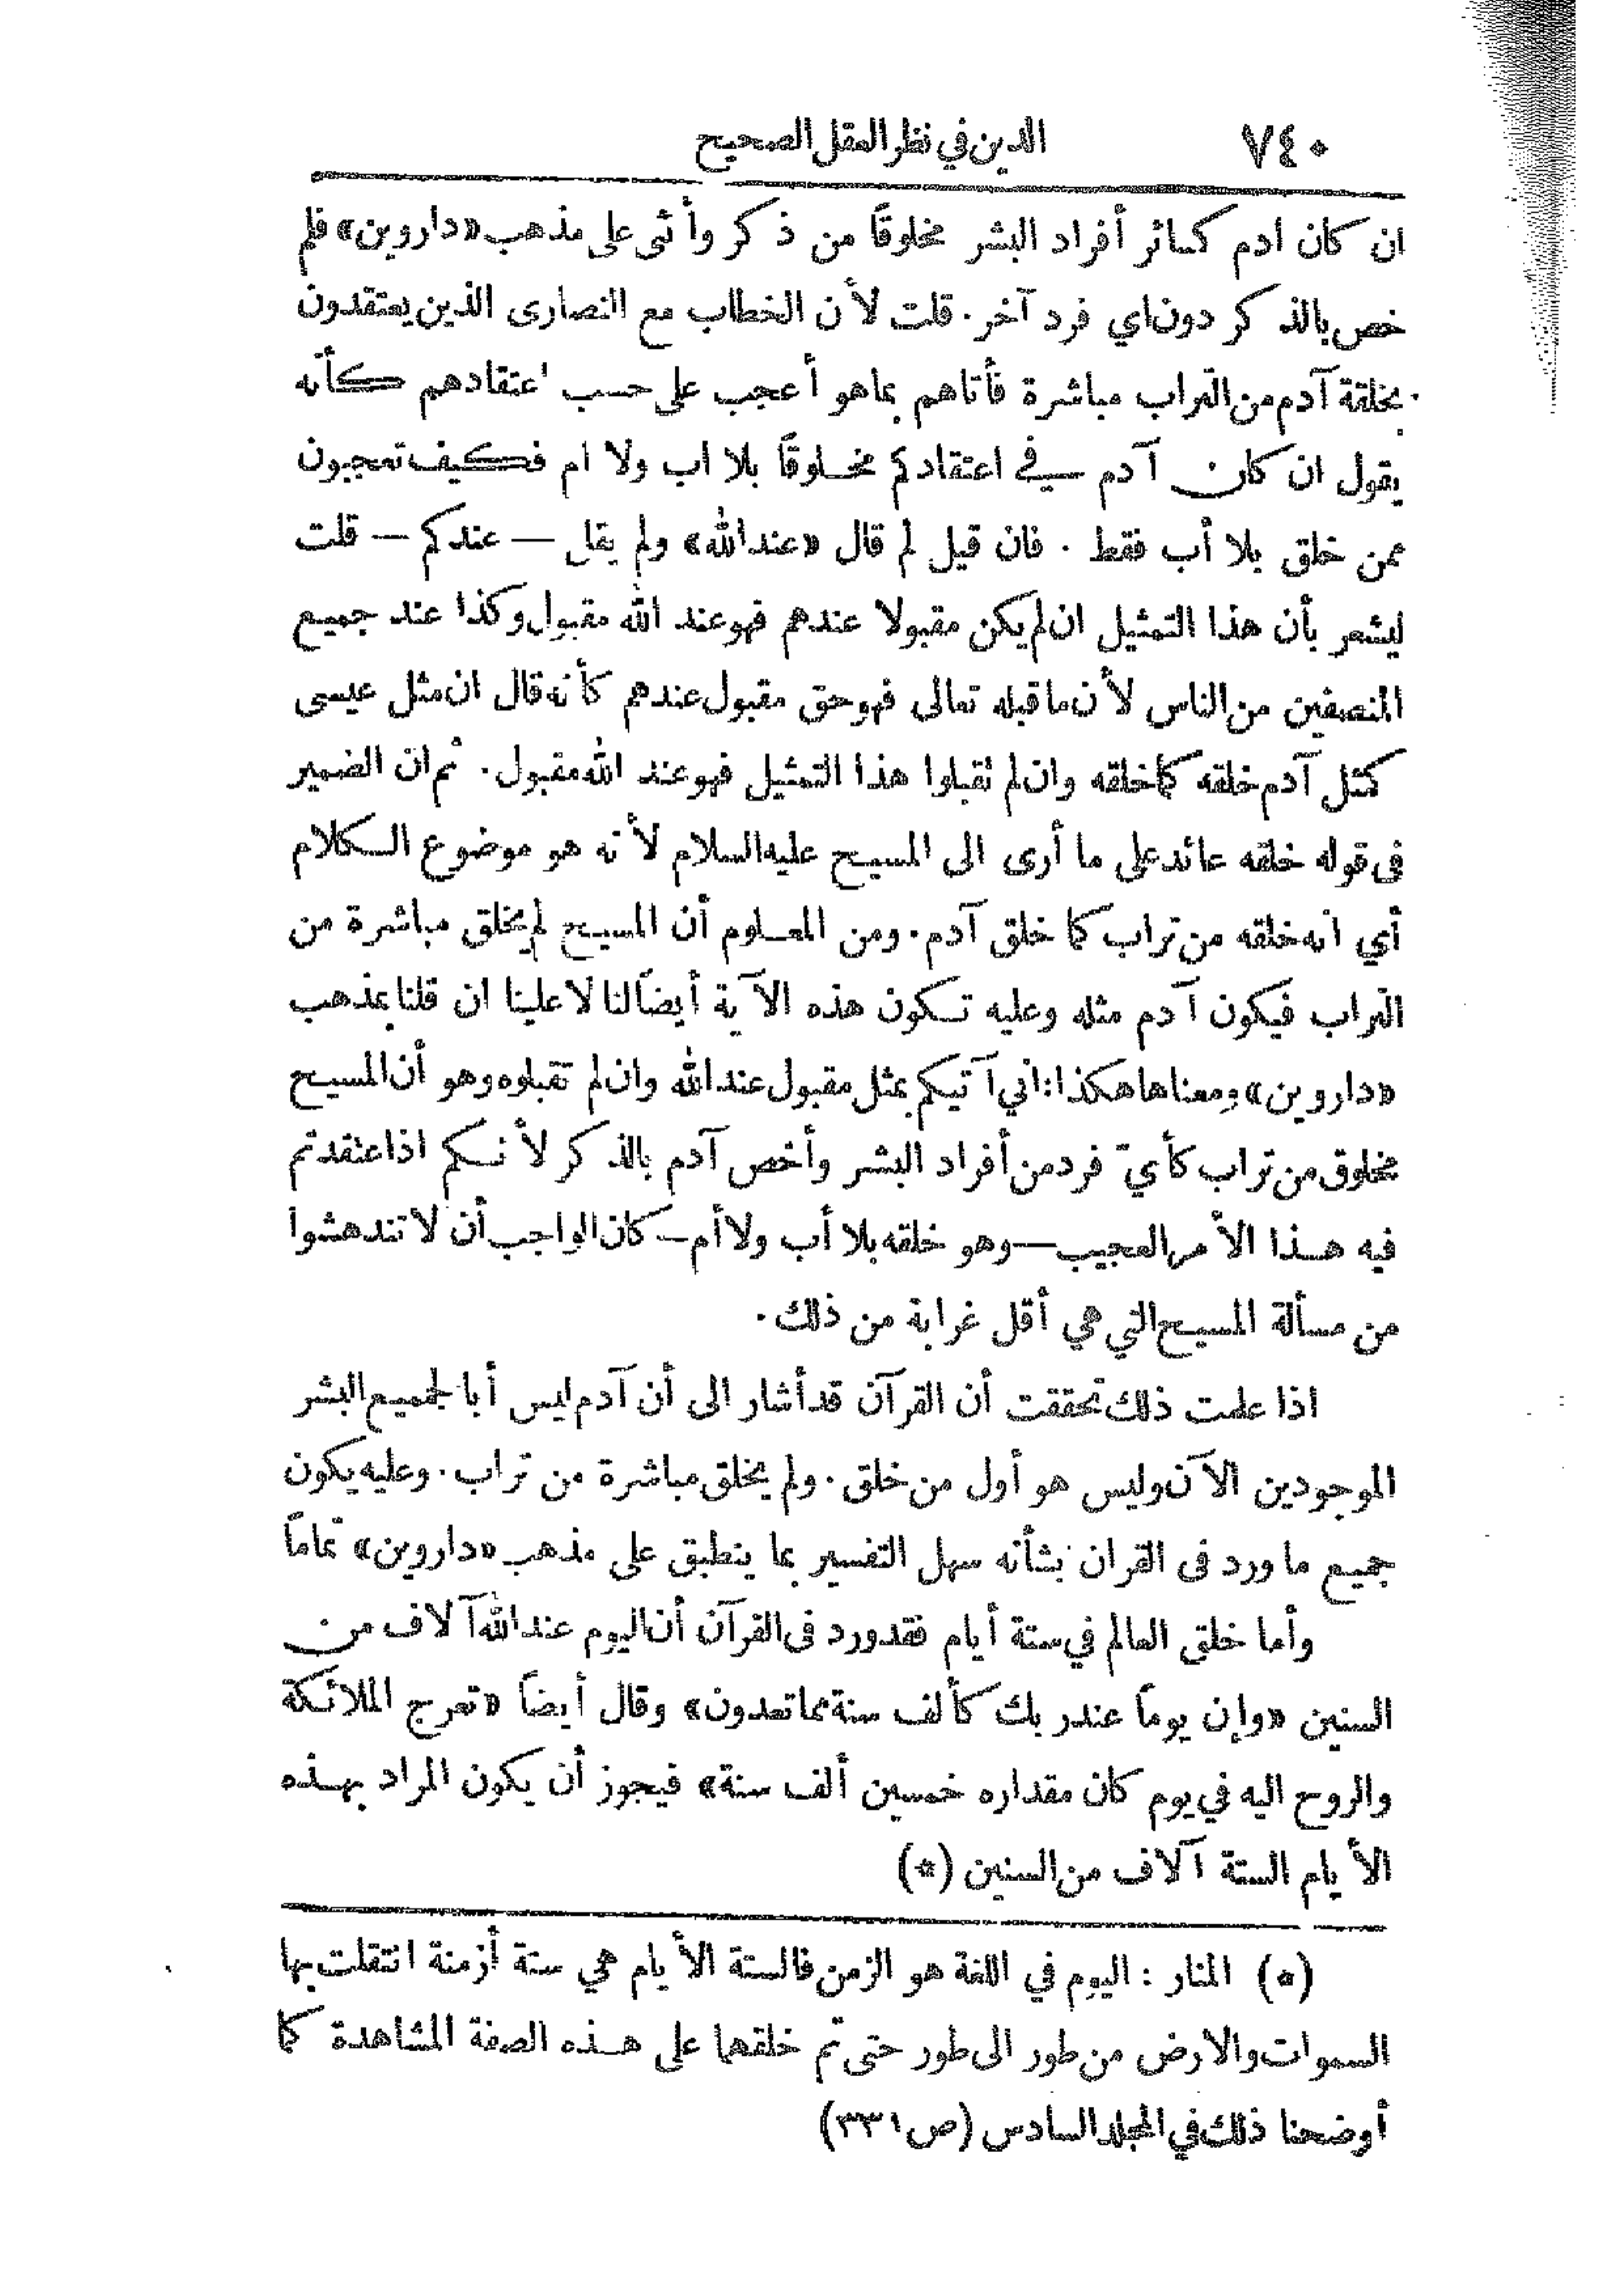 ٧٤٠ الدين في نظر العقل الصحيح
ان كان ادم كسائر أفراد البشر مخلوقًا من ذكر وأنثى على مذهب «داروين» فلم
خص بالذكر دون اي فرد آخر. قلت لأن الخطاب مع النصارى الذين يعتقدون
بخلقة آدم من التراب مباشرة فأتاهم بما هو أعجب على حسب اعتقادهم كأنه
يقول ان كان آدم في اعتقادكم مخلوقًا بلا اب ولا ام فكيف تعجبون
ممن خلق بلا أب فقط . فان قيل لم قال «عند الله» ولم يقل — عندكم — قلت
ليشعر بأن هذا التمثيل ان لم يكن مقبولا عندهم فهو عند الله مقبول وكذا عند جميع
المنصفين من الناس لأن ما قبله تعالى فهو حق مقبول عندهم كأنه قال ان مثل عيسى
كمثل آدم خلقه كما خلقه وان لم تقبلوا هذا التمثيل فهو عند الله مقبول. ثم ان الضمير
في قوله خلقه عائد على ما أرى الى المسيح عليه السلام لأنه هو موضوع الكلام
أي انه خلقه من تراب كما خلق آدم. ومن المعلوم أن المسيح لم يخلق مباشرة من
التراب فيكون آدم مثله وعليه تكون هذه الآية أيضًا لنا لا علينا ان قلنا بمذهب
«داروين» ومعناها هكذا: اني آتيكم بمثل مقبول عند الله وان لم تقبلوه وهو أن المسيح
مخلوق من تراب كأيّ فرد من أفراد البشر وأخص آدم بالذكر لأنكم اذا عتقدتم
فيه هذا الأمر العجيب — وهو خلقه بلا أب ولا أم — كان الواجب أن لا تندهشوا
من مسألة المسيح التي هي أقل غرابة من ذلك.
اذا علمت ذلك تحققت أن القرآن قد أشار الى أن آدم ليس أبا لجميع البشر
الموجودين الآن وليس هو أول من خلق. ولم يخلق مباشرة من تراب. وعليه يكون
جميع ما ورد في القران بشأنه سهل التفسير بما ينطبق على مذهب «داروين» تمامًا
وأما خلق العالم في ستة أيام فقد ورد في القرآن أن اليوم عند الله آلاف من
السنين «وإن يومًا عند ربك كألف سنة مما تعدون» وقال أيضًا «تعرج الملائكة
والروح اليه في يوم كان مقداره خمسين ألف سنة» فيجوز أن يكون المراد بهذه
الأيام الستة آلاف من السنين (*)
(*) المنار : اليوم في اللغة هو الزمن فالستة الأيام هي ستة أزمنة انتقلت بها
السموات والارض من طور الى طور حتى تم خلقهما على هذه الصفة المشاهدة كما
أوضحنا ذلك في المجلد السادس (ص ٣٣١)